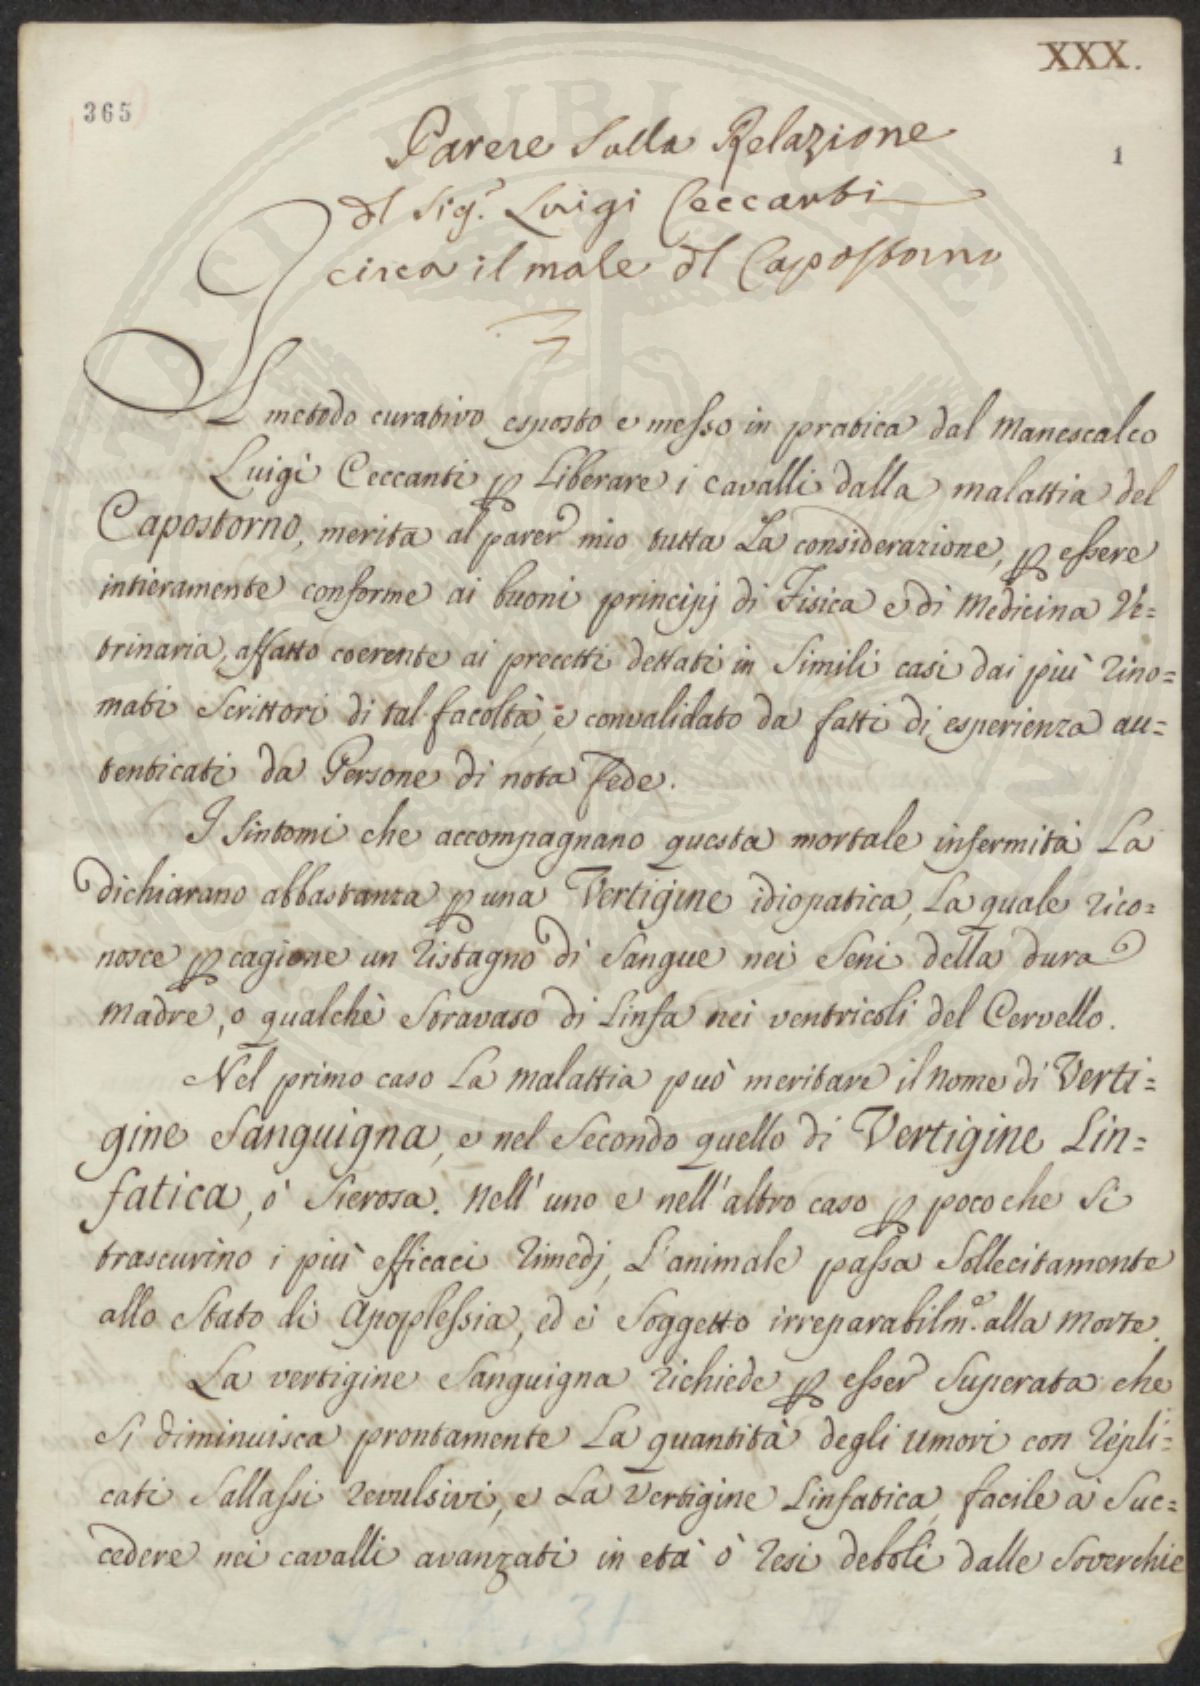 XXX.
365
1
Parere Sulla Relazione
del Sig.r Luigi Ceccanti
circa il male del Capostorno
Il metodo curativo esposto e messo in pratica dal Manescalco
Luigi Ceccanti p Liberare i cavalli dalla malattia del
Capostorno, merita al parer mio tutta La considerazione, p essere
intieramente conforme ai buoni principj di Fisica e di Medicina Ve=
trinaria, affatto coerente ai precetti dettati in Simili casi dai più rino=
mati Scrittori di tal facoltà, e convalidato da fatti di esperienza au=
tenticati da Persone di nota Fede.
I Sintomi che accompagnano questa mortale infermità La
dichiarano abbastanza p una Vertigine idiopatica, La quale rico=
nosce p cagione un ristagno di Sangue nei Seni della dura
Madre, o qualche Stravaso di Linfa nei ventricoli del Cervello.
Nel primo caso La malattia può meritare il nome di Verti=
gine Sanguigna, e nel Secondo quello di Vertigine Lin=
fatica, o Sierosa. Nell' uno e nell'altro caso p poco che Si
trascurino i più efficaci rimedj, L'animale passa Sollecitamente
allo Stato di Apoplessia, ed è Soggetto irreparabilm.e alla Morte.
La vertigine Sanguigna richiede p esser Superata che
Si diminuisca prontamente La quantità degli umori con repli=
cati Sallassi revulsivi, e La vertigine Linfatica, facile a Suc=
cedere nei cavalli avanzati in età ò resi deboli dalle Soverchie